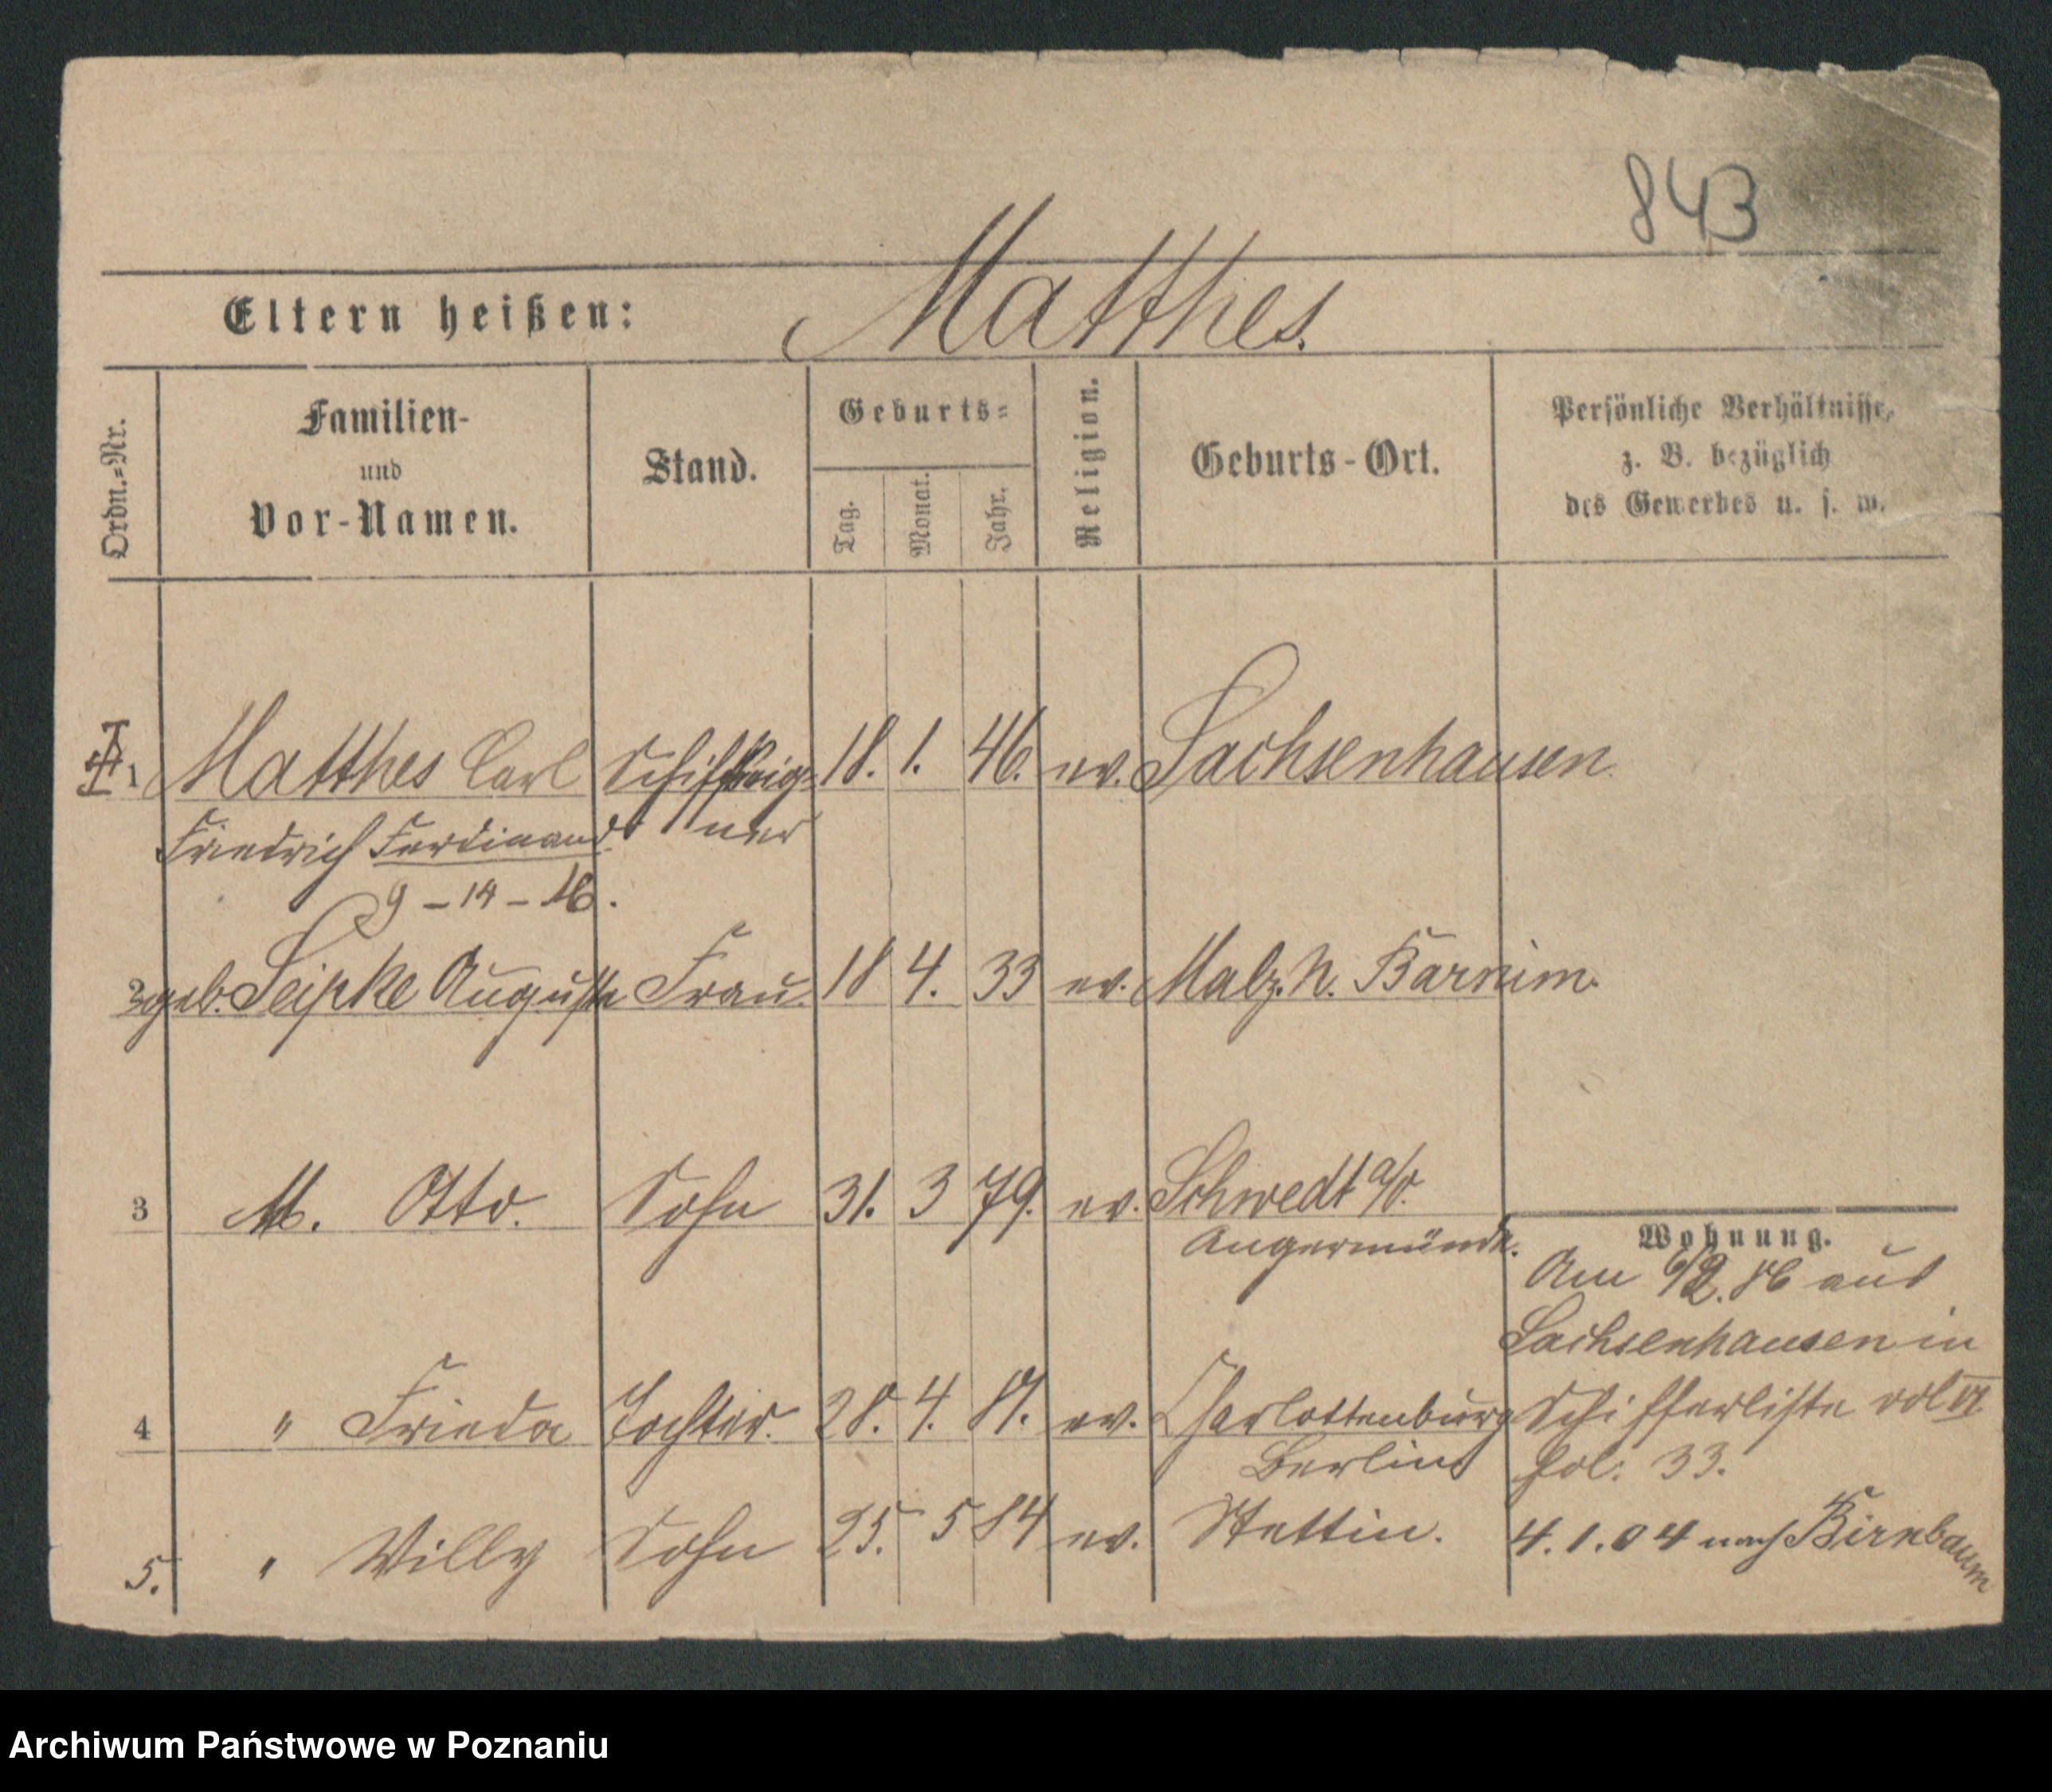 843
Eltern heißen: Matthes.
Ordn.=Nr.
Familien-
und
Vor-Namen.
Stand.
Geburts=
Tag.
Monat.
Jahr.
Religion.
Geburts-Ort.
Persönliche Verhältnisse,
z. B. bezüglich
des Gewerbes u. s. w.
1 Matthes Carl Schiffseig= 18. 1. 46. ev. Sachsenhausen.
Friedrich Ferdinand. ner
9 – 14 – 16.
2 geb. Seipke Auguste Frau. 18 4. 33 ev. Malz. N. Barnim.
3 M. Otto. Sohn 31. 3 79. ev. Schwedt a/O.
Angermünde.
4 " Frieda Tochter. 28. 4. 81. ev. Charlottenburg
Berlin
5. " Willy Sohn 25. 5 84 ev. Stettin.
Wohnung.
Am 6/2. 86 aus
Sachsenhausen in
Schifferliste vol VI
fol: 33.
4.1.04 nach Birnbaum
Archiwum Państwowe w Poznaniu